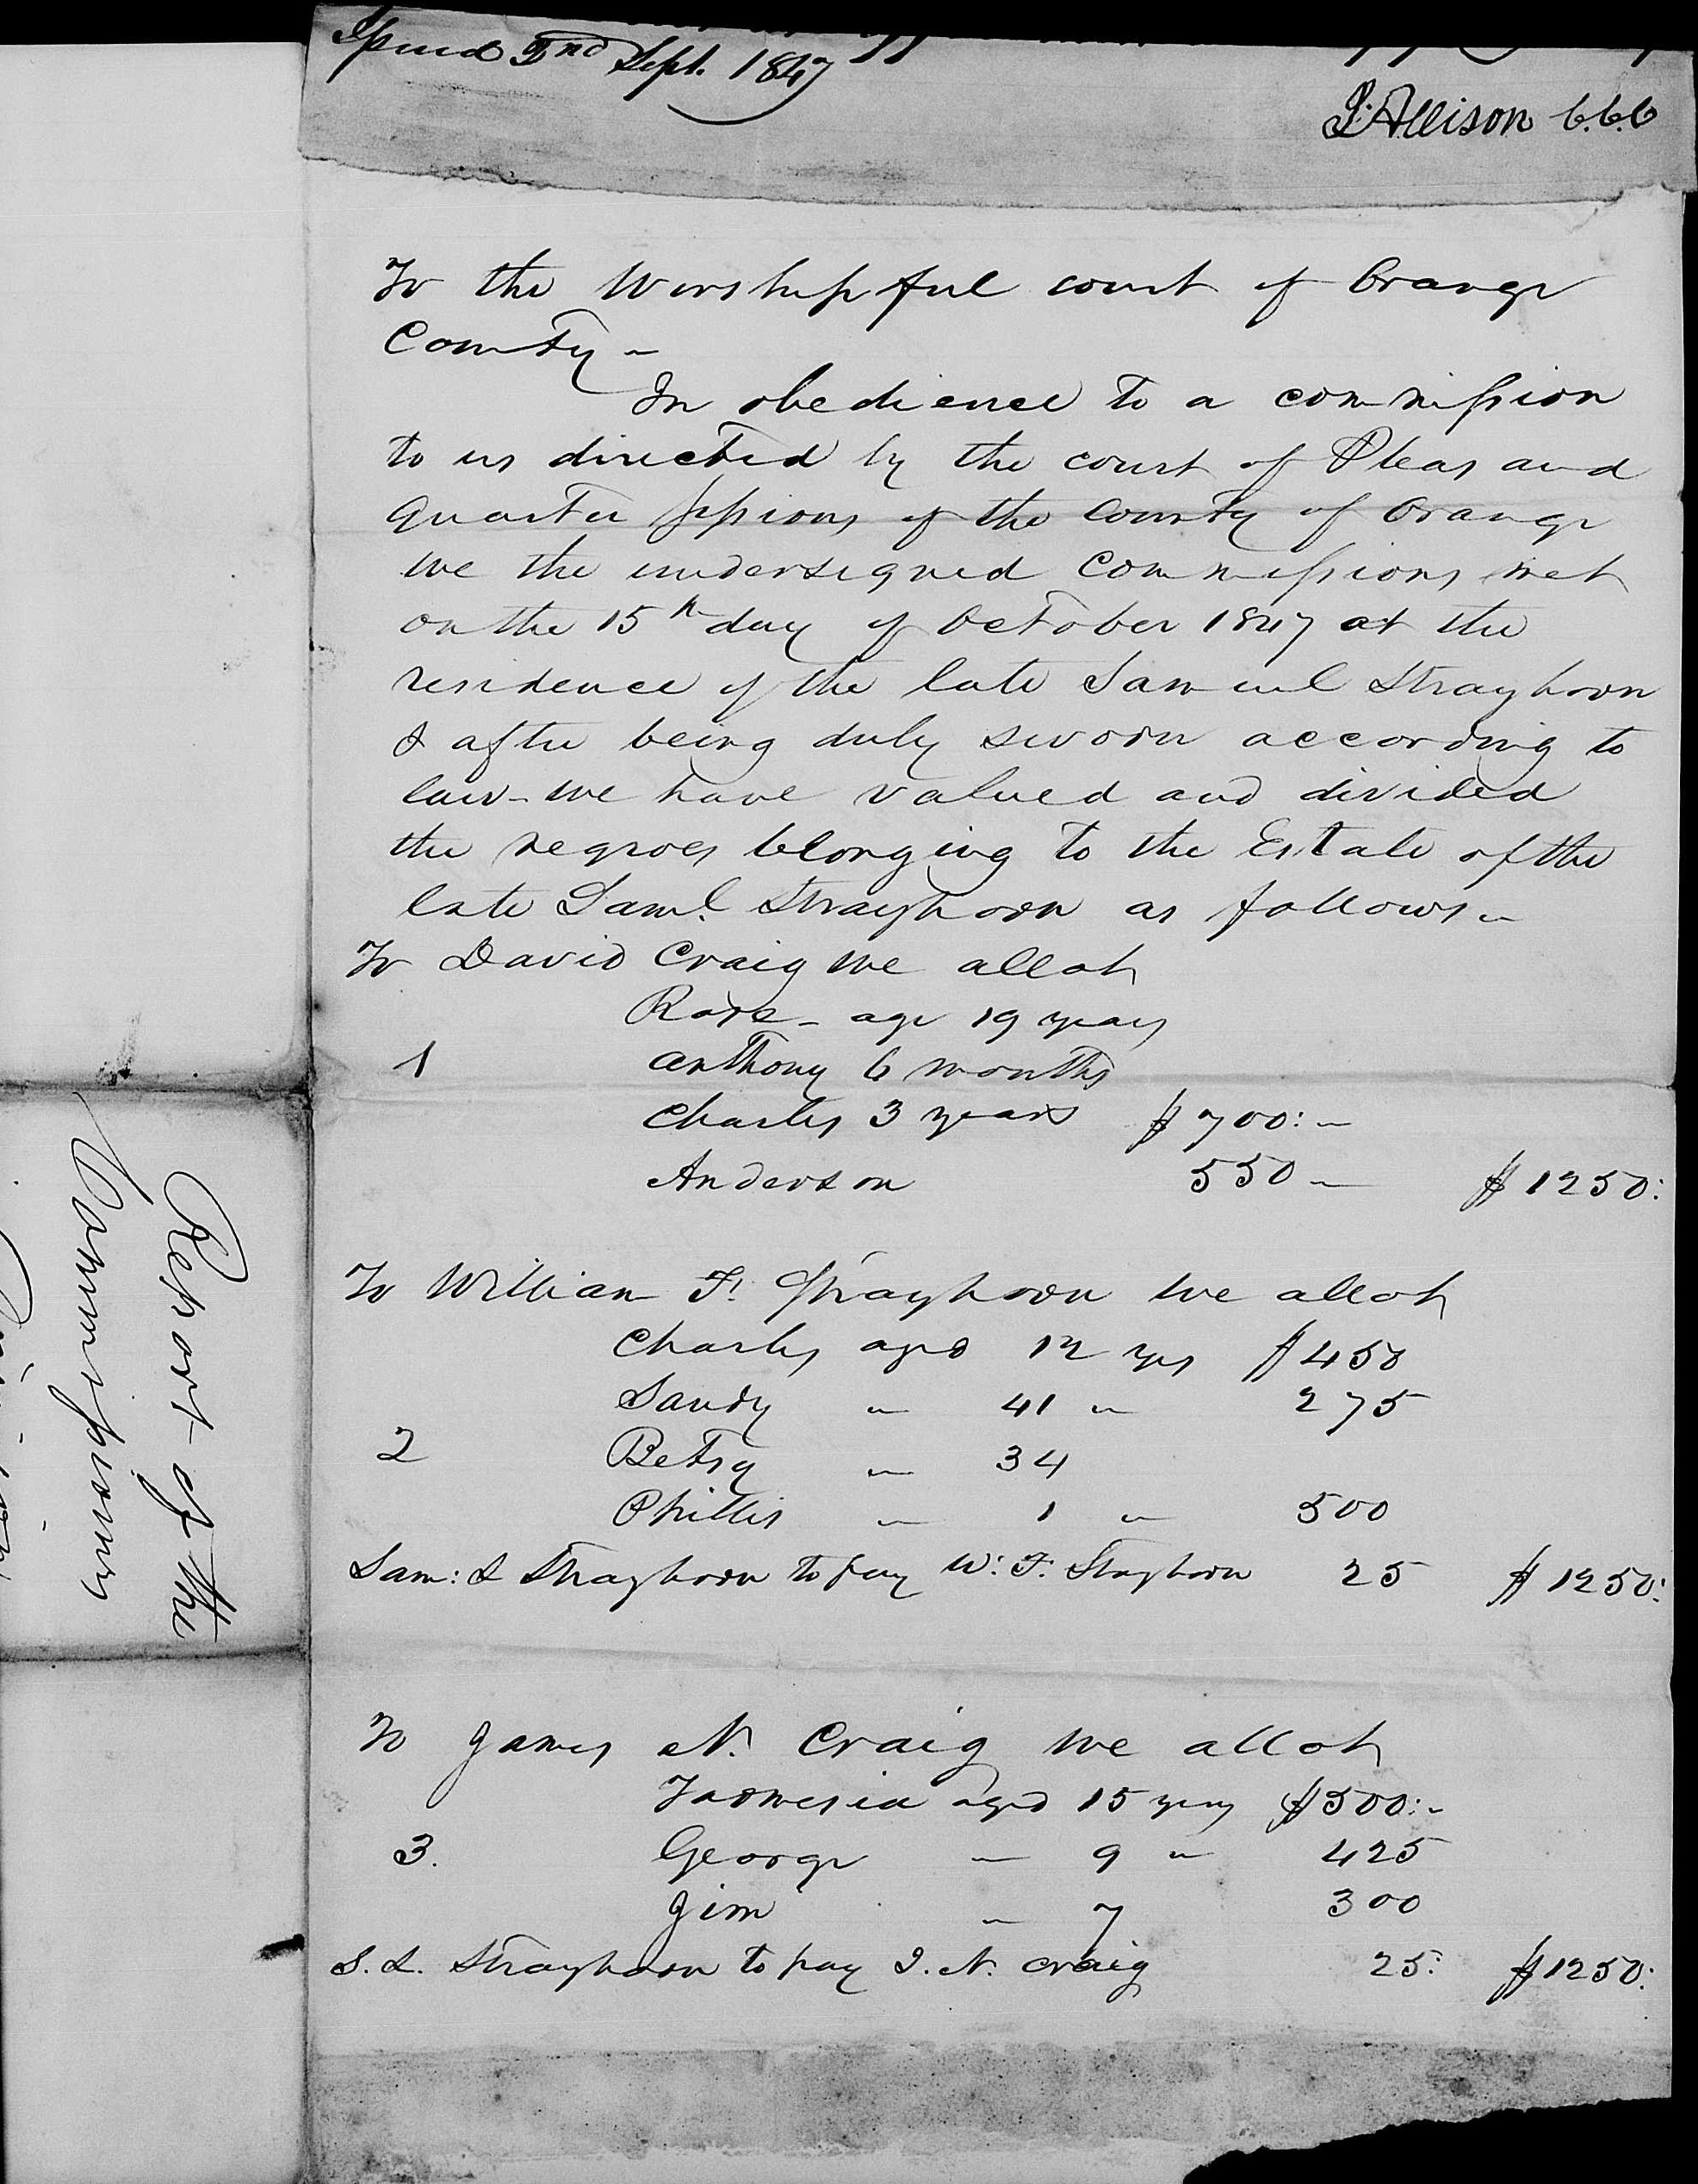 Issued 2nd Sept. 1847
J. Allison C.C.C
To the Worshipful court of Orange
County -
In obedience to a commission
to us directed by the court of Pleas and
Quarter Sessions of the County of Orange
we the undersigned Commissions met
on the 15th day of October 1847 at the
residence of the late Samuel Strayhorn
& after being duly sworn according to
law - we have valued and divided
the negroes belonging to the Estate of the
late Saml. Strayhorn as follows -
To David Craig we allot
Rose - age 19 years
1 Anthony 6 months
Charles 3 years $700: -
Anderson 550 - $1250:
To William F. Strayhorn we allot
Charles aged 12 yrs $450
Sandy " 41 " 275
2 Betsy " 34
Phillis " 1 " 500
Sam: S Strayhorn to pay W. F. Strayhorn 25 $1250:
To James N. Craig we allot
aged 15 years $500: -
3. George " 9 " 425
Jim " 7 300
S. S. Strayhorn to pay J. N. Craig 25: $1250:
Report of the
Commissioners